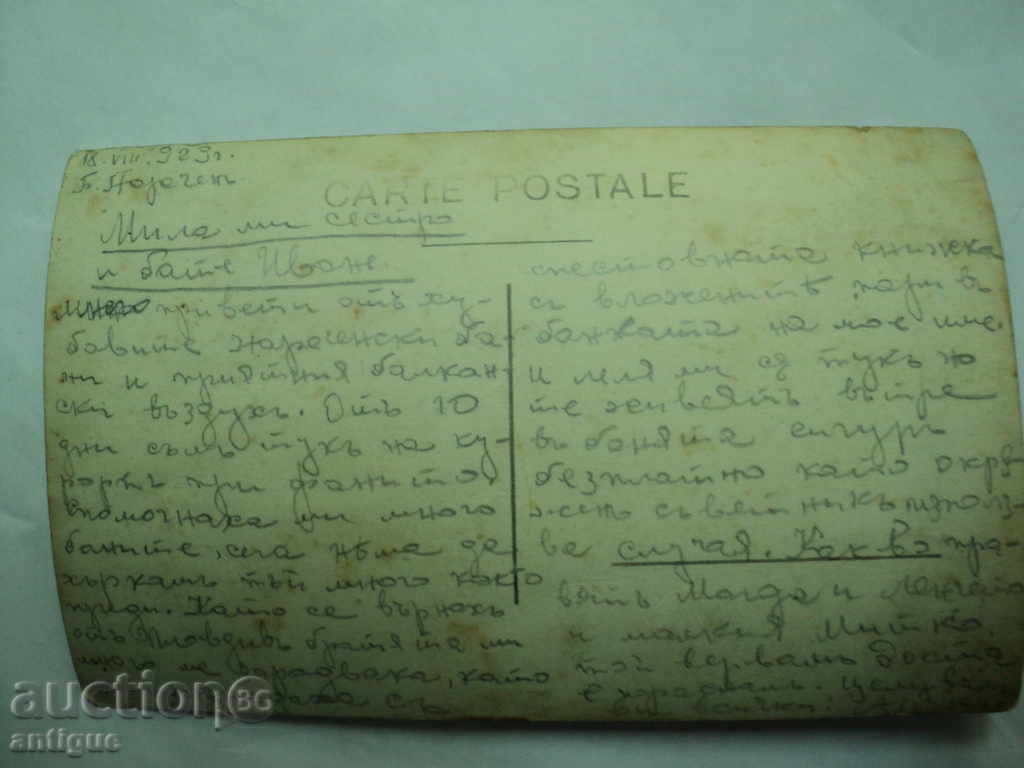 18.VIII.929г.
CARTE POSTALE
Мила ми сестро
и бате Иван.
много приветиотъ ху-
бавите нареченски ба-
ни и приятния балкан-
ски въздухъ. Отъ 10
дни съмъ тукъ на ку-
рортъ при
въпомогнаха ми много
баните, сега нѣма да
хъркамъ тъй много както
преди. Като се върнахъ
отъ Пловдивъ братята ми
много ме зарадваха, като
съ
спестовната книжка
съ вложенитѣ пари въ
банката на мое име.
и леля ми са тукъ но
те живеятъ вътре
въ банята сигуръ
безплатно като окрѫ-
женъ съветникъ използ-
ва случая. Какво пра-
вятъ Магда и Ленчето
и малкия Митко.
той вервамъ доста
е порасналъ. Целувамъ
ви всички:
auction86
antique